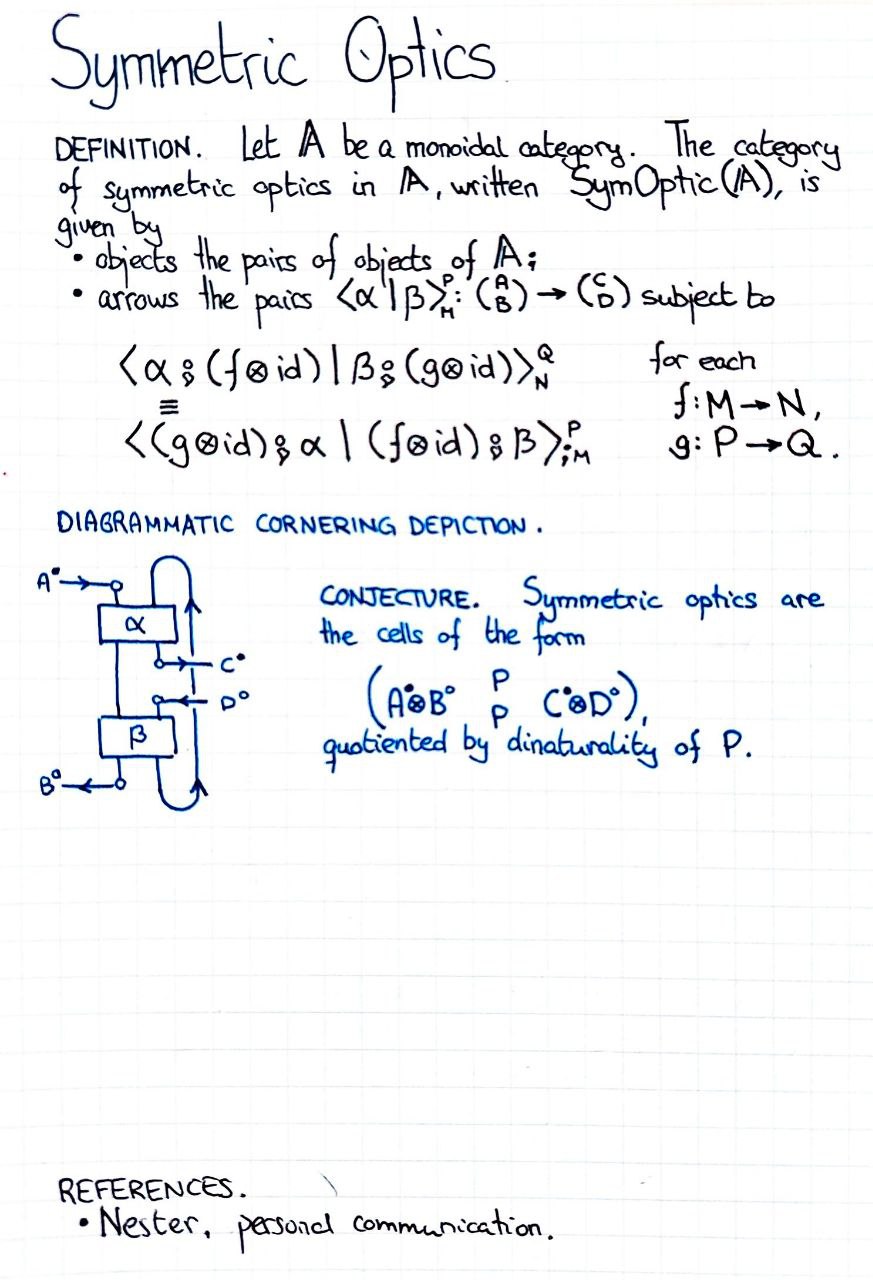 Symmetric Optics
DEFINITION. Let 𝔸 be a monoidal category. The category
of symmetric optics in 𝔸, written SymOptic(𝔸), is
given by
• objects the pairs of objects of 𝔸;
• arrows the pairs ⟨α|β⟩ᴾ;ᴍ : (A B) → (C D) subject to
⟨α⨟(f⊗id) | β⨟(g⊗id)⟩ Q N for each
≡ f: M → N,
⟨(g⊗id)⨟α | (f⊗id)⨟β⟩ P ;M g: P → Q.
DIAGRAMMATIC CORNERING DEPICTION.
A•
α
C•
D°
β
B°
CONJECTURE. Symmetric optics are
the cells of the form
(A•⊗B° P P C•⊗D°),
quotiented by dinaturality of P.
REFERENCES.
• Nester, personal communication.